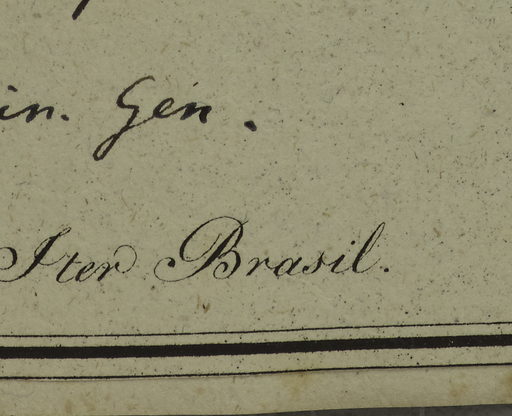 in. Gen.
Iter Brasil.